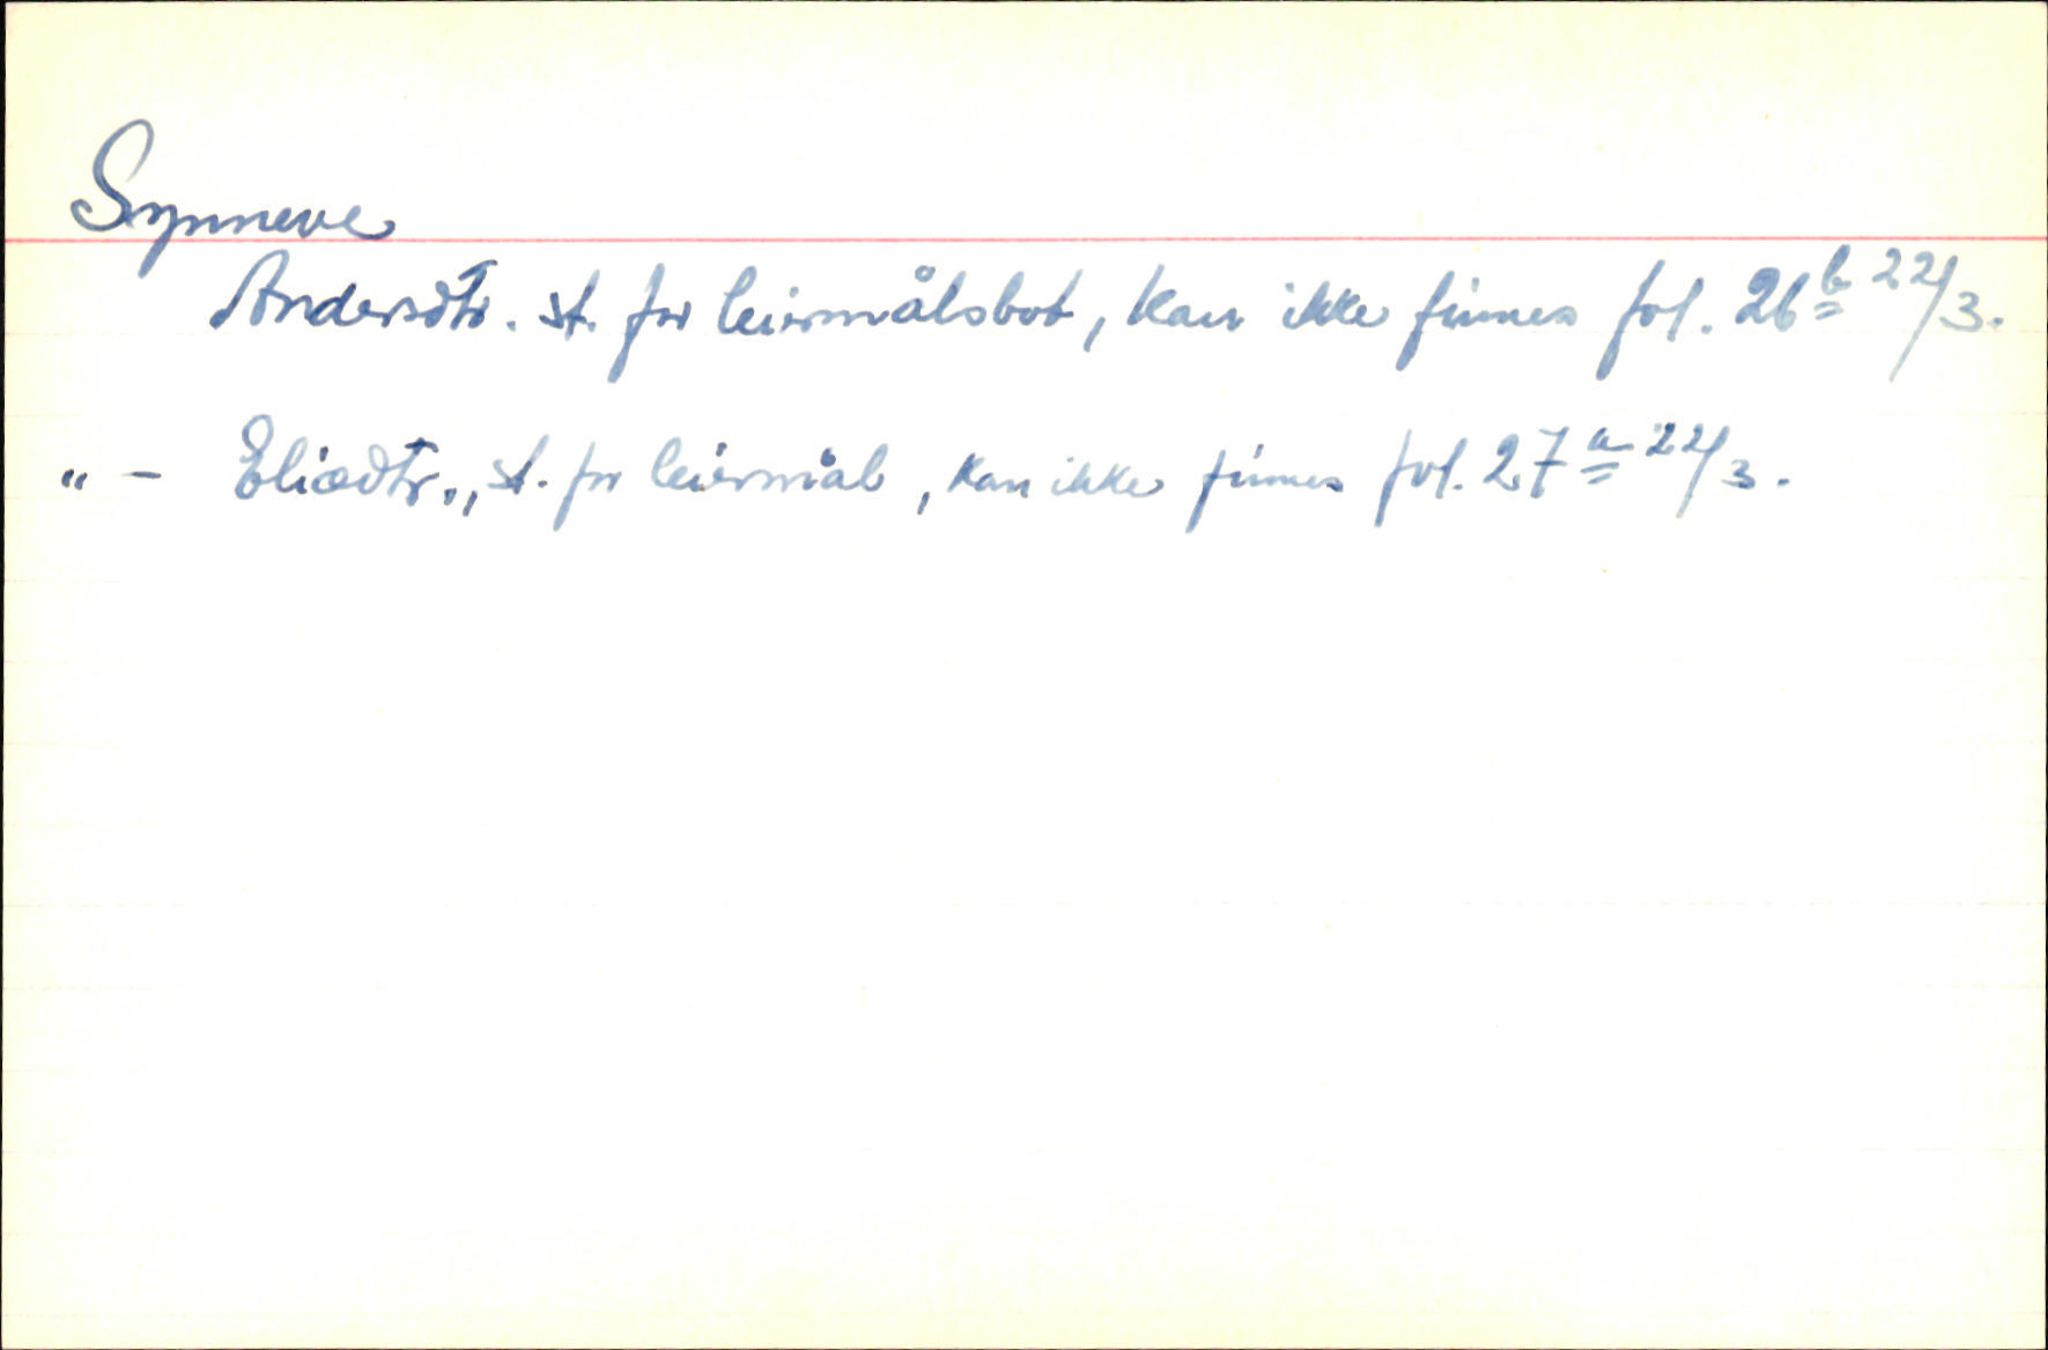 Synneve
Andersdtr. st. for leiermålsbot, kan ikke finnes fol. 26b 22/3.
" - Eliasdtr., st. for leiermål, kan ikke finnes fol. 27a 22/3.